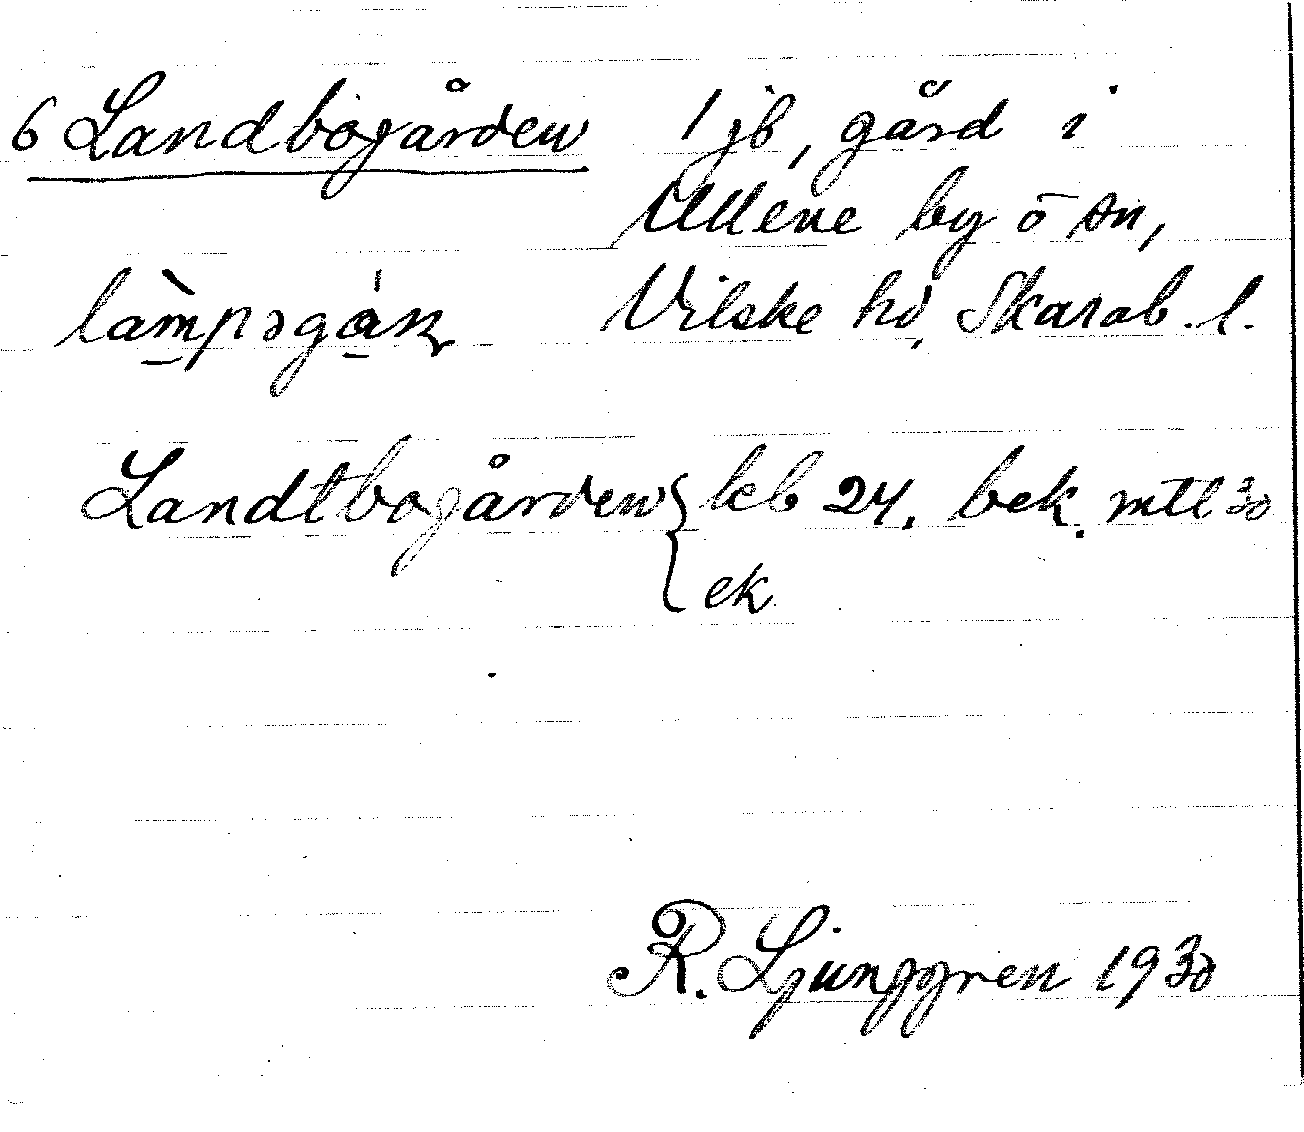 6 Landbogården 1 jb, gård i
Ullene by o sn,
làmpəgáɳ Vilske hd, Skarab. l.
Landtbogården { kb 24. bek. mtl 30
ek
R. Ljunggren 1930